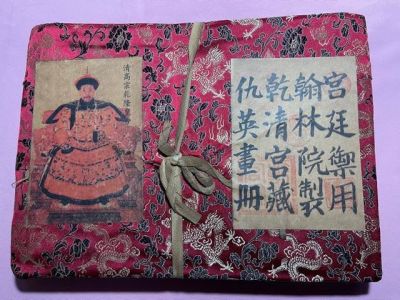 宫廷禦用
翰林院製
乾清宫藏
仇英畫冊
清高宗乾隆